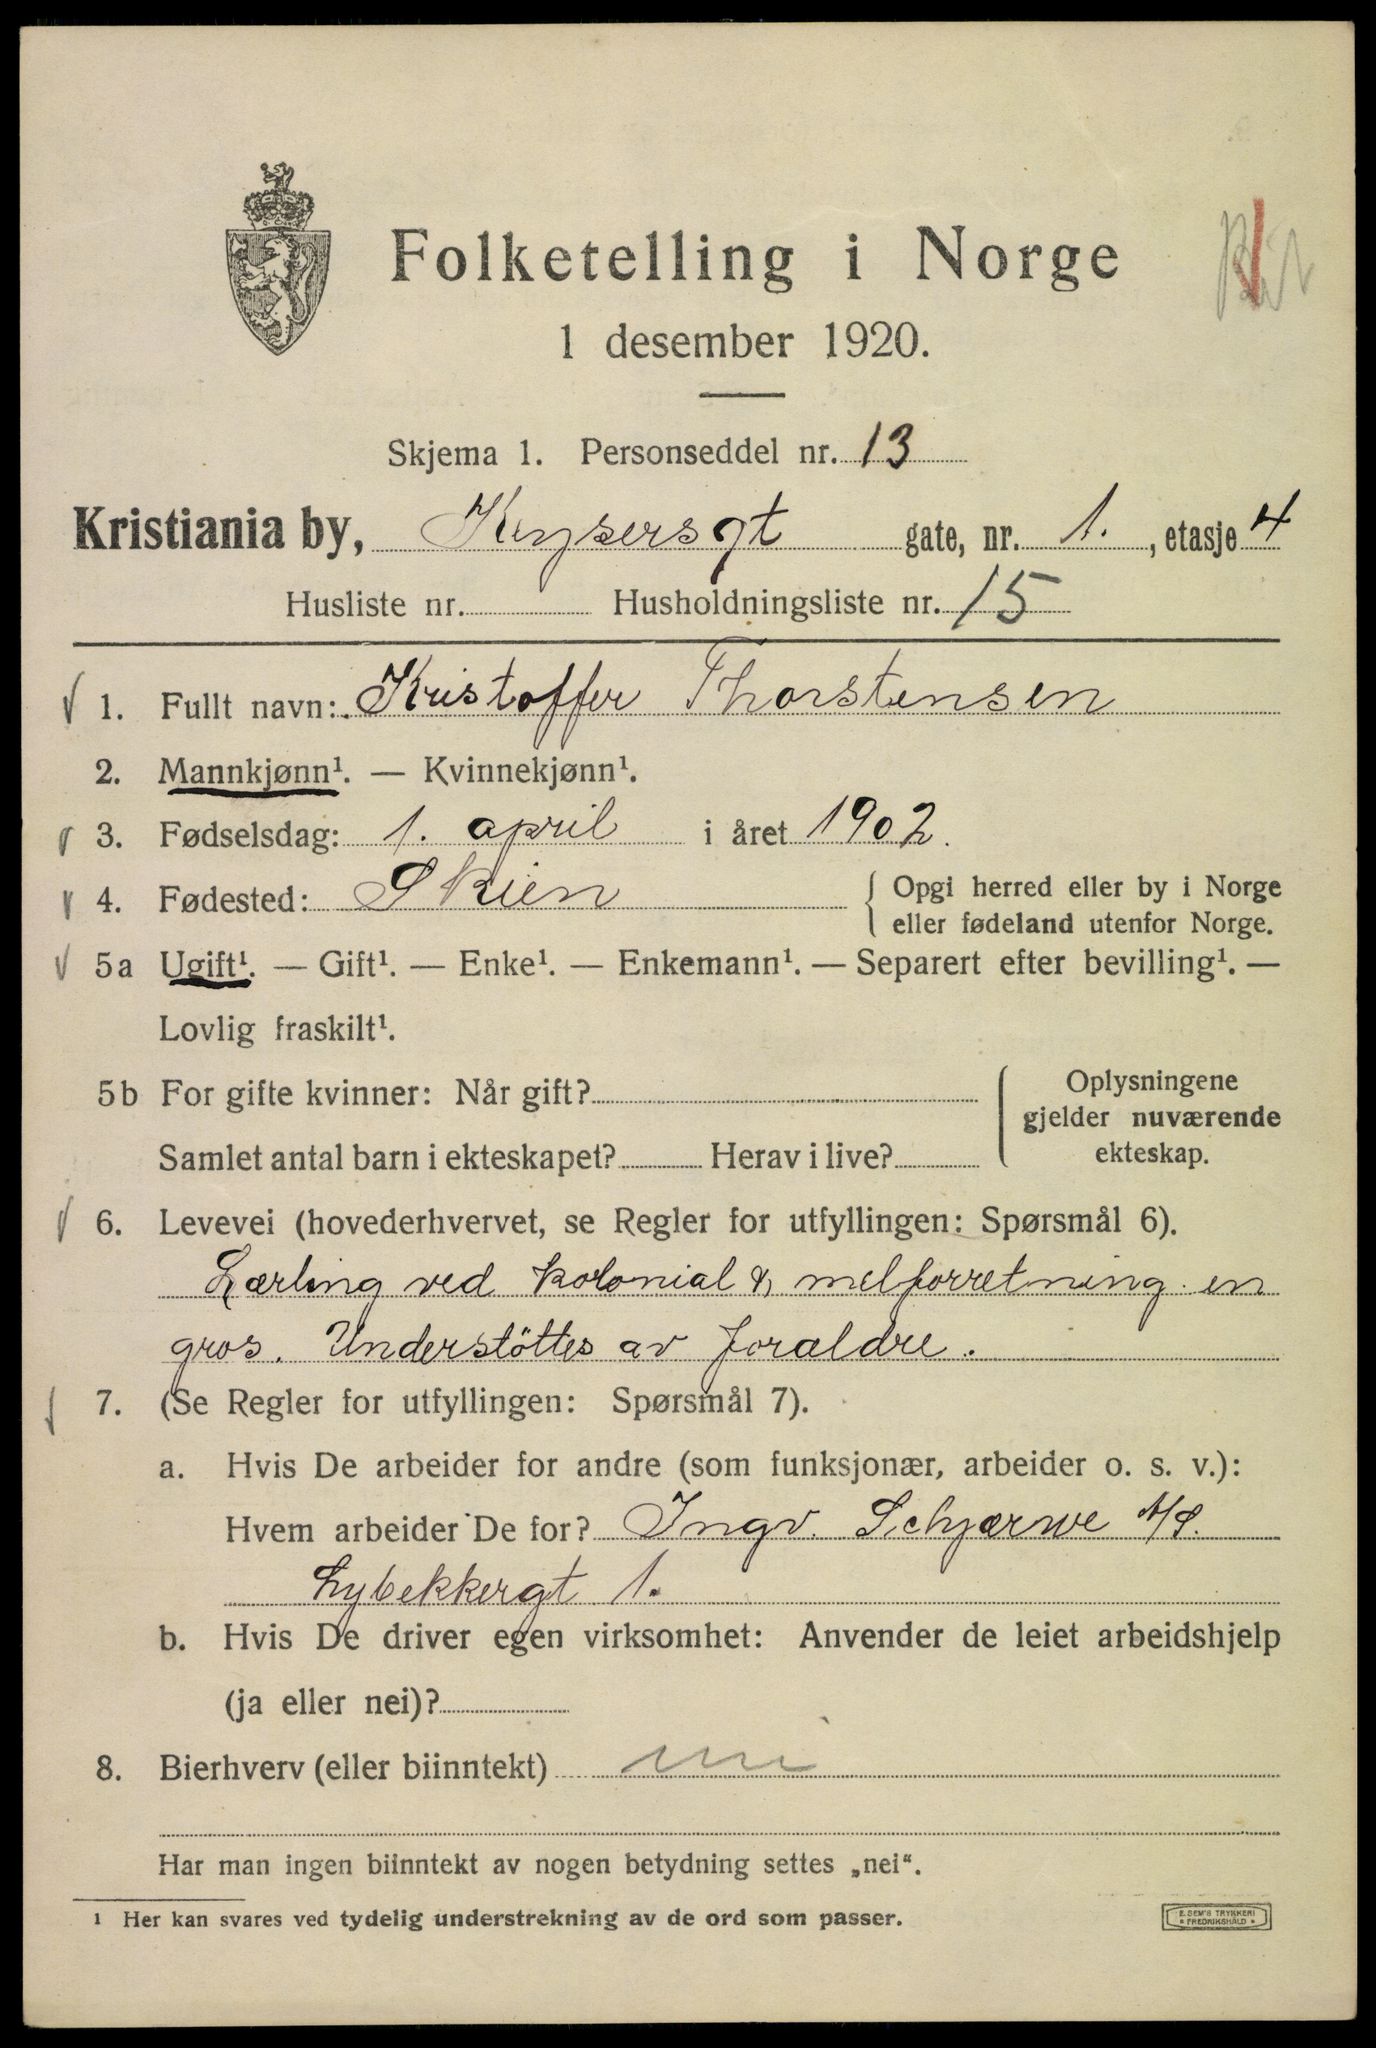 Folketelling i Norge
1 desember 1920.
Skjema 1. Personseddel nr. 13
Kristiania by, Keysersgt gate, nr. 1. , etasje 4
Husliste nr. Husholdningsliste nr. 15
1. Fullt navn: Kristoffer Thorstensen
2. Mannkjønn¹. — Kvinnekjønn¹.
3. Fødselsdag: 1. april i året 1902.
4. Fødested: Skien { Opgi herred eller by i Norge
eller fødeland utenfor Norge.
5a Ugift¹. — Gift¹. — Enke¹. — Enkemann¹. — Separert efter bevilling¹. —
Lovlig fraskilt¹.
5b For gifte kvinner: Når gift?
Samlet antal barn i ekteskapet? Herav i live?
Oplysningene
gjelder nuværende
ekteskap.
6. Levevei (hovederhvervet, se Regler for utfyllingen: Spørsmål 6).
Lærling ved kolonial & melforretning en
gros. Understöttes av foraldre.
7. (Se Regler for utfyllingen: Spørsmål 7).
a. Hvis De arbeider for andre (som funksjonær, arbeider o. s. v.):
Hvem arbeider De for? Ingv. Schjærwe A/S.
Lybekkergt 1.
b. Hvis De driver egen virksomhet: Anvender de leiet arbeidshjelp
(ja eller nei)?
8. Bierhverv (eller biinntekt) nei
Har man ingen biinntekt av nogen betydning settes „nei“.
1 Her kan svares ved tydelig understrekning av de ord som passer.
E. SEM'S TRYKKERI
* FREDRIKSHALD *